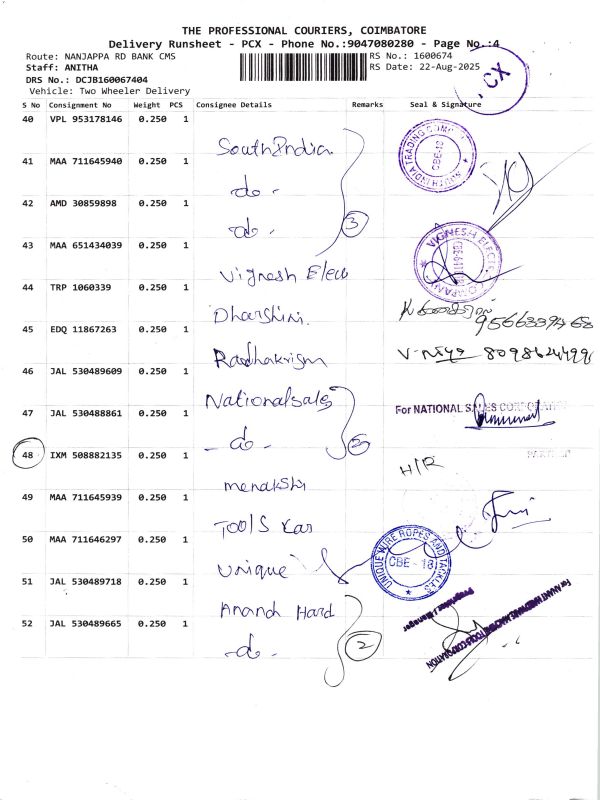 THE PROFESSIONAL COURIERS, COIMBATORE
Delivery Runsheet - PCX - Phone No.:9047080280 - Page No.:4
Route: NANJAPPA RD BANK CMS
RS No.: 1600674
Staff: ANITHA
RS Date: 22-Aug-2025
DRS No.: DCJB160067404
Vehicle: Two Wheeler Delivery
CX
S No Consignment No Weight PCS Consignee Details Remarks Seal & Signature
40 VPL 953178146 0.250 1 South India
41 MAA 711645940 0.250 1 -do-
42 AMD 30859898 0.250 1 -do- 3
43 MAA 651434039 0.250 1 Vignesh Elec
44 TRP 1060339 0.250 1 Dharshini.
45 EDQ 11867263 0.250 1 Radhakrisna
8098624499
46 JAL 530489609 0.250 1 Nationalsales
For NATIONAL SALES CORPORATION
47 JAL 530488861 0.250 1 -do- 2
48 IXM 508882135 0.250 1 menakshi
H/R
49 MAA 711645939 0.250 1 Tools Kar
50 MAA 711646297 0.250 1 Unique
UNIQUE WIRE ROPES AND TACKLES
CBE - 18
51 JAL 530489718 0.250 1 Anand Hard
52 JAL 530489665 0.250 1 -do- 2